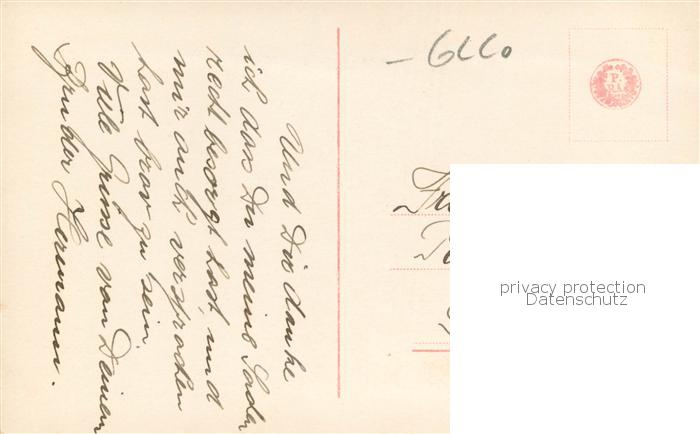 Und Dir danke
ich das Du meine Sachen
recht besorgt hast, und
mir auch versprochen
hast brav zu sein.
Viele Grüsse von Deinem
Bruder Hermann.
P.
privacy protection
Datenschutz